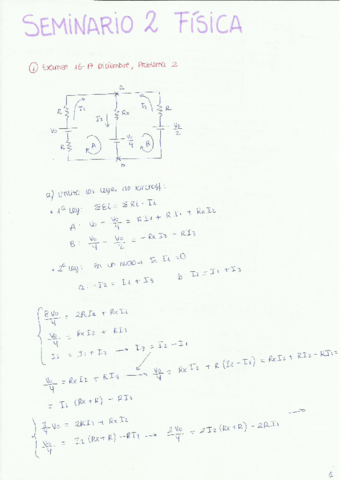 SEMINARIO 2 FÍSICA
① Examen 16-17 Diciembre, Problema 2
a
R I1 Rx I3 R
I2
V0 V0/4 V0/2
R A B
b
a) Utilizar las leyes de Kirchhoff:
• 1ª ley: ΣEi = ΣRi · Ii
A: V0 - V0/4 = RI1 + RI1 + RxI2
B: V0/4 - V0/2 = -RxI2 - RI3
• 2ª ley: En un nudo Σ Ii = 0
a: I2 = I1 + I3 b: I2 = I1 + I3
3V0/4 = 2RI1 + RxI2
V0/4 = RxI2 + RI3
I2 = I1 + I3 → I3 = I2 - I1
V0/4 = RxI2 + RI3 → V0/4 = RxI2 + R(I2 - I1) = RxI2 + RI2 - RI1
= I2(Rx+R) - RI1
3/4 V0 = 2RI1 + RxI2
V0/4 = I2(Rx+R) - RI1 → 2V0/4 = 2I2(Rx+R) - 2RI1
1